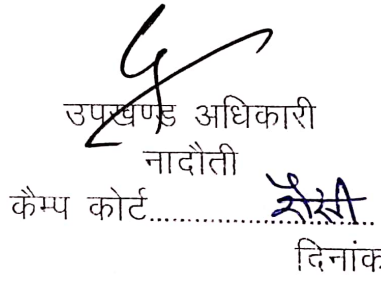 उपखण्ड अधिकारी
नादौती
कैम्प कोर्ट.......................
दिनांक